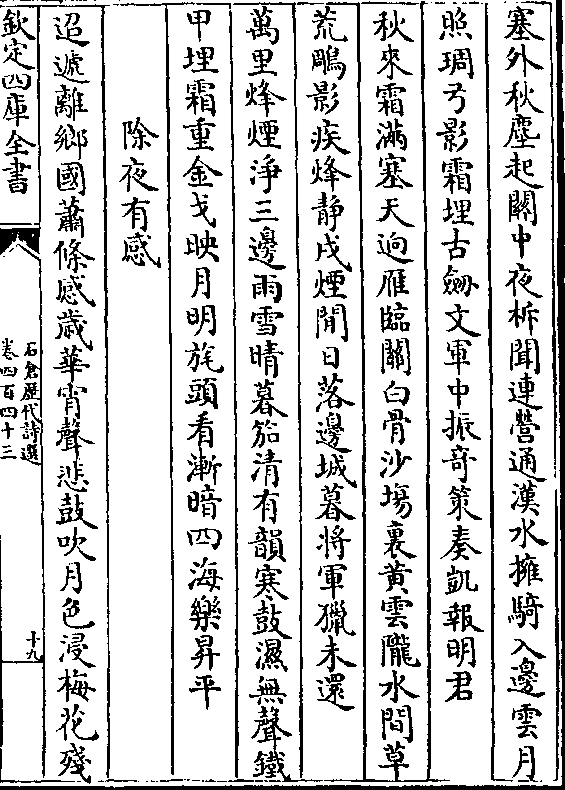 塞外秋塵起關中夜柝聞連營通漢水擁騎入邊雲月
照琱弓影霜埋古劒文軍中振奇策奏凱報明君
秋來霜滿塞天逈雁臨關白骨沙塲裏黄雲隴水間草
荒鵰影疾烽静戍煙閒日落邊城暮將軍獵未還
萬里烽煙浄三邊雨雪晴暮笳清有韻寒鼓濕無聲鐵
甲埋霜重金戈映月明旄頭看漸暗四海樂昇平
除夜有感
迢遞離鄉國蕭條感歳華宵聲悲鼓吹月色浸梅花殘
欽定四庫全書
石倉歴代詩選
卷四百四十三
十九